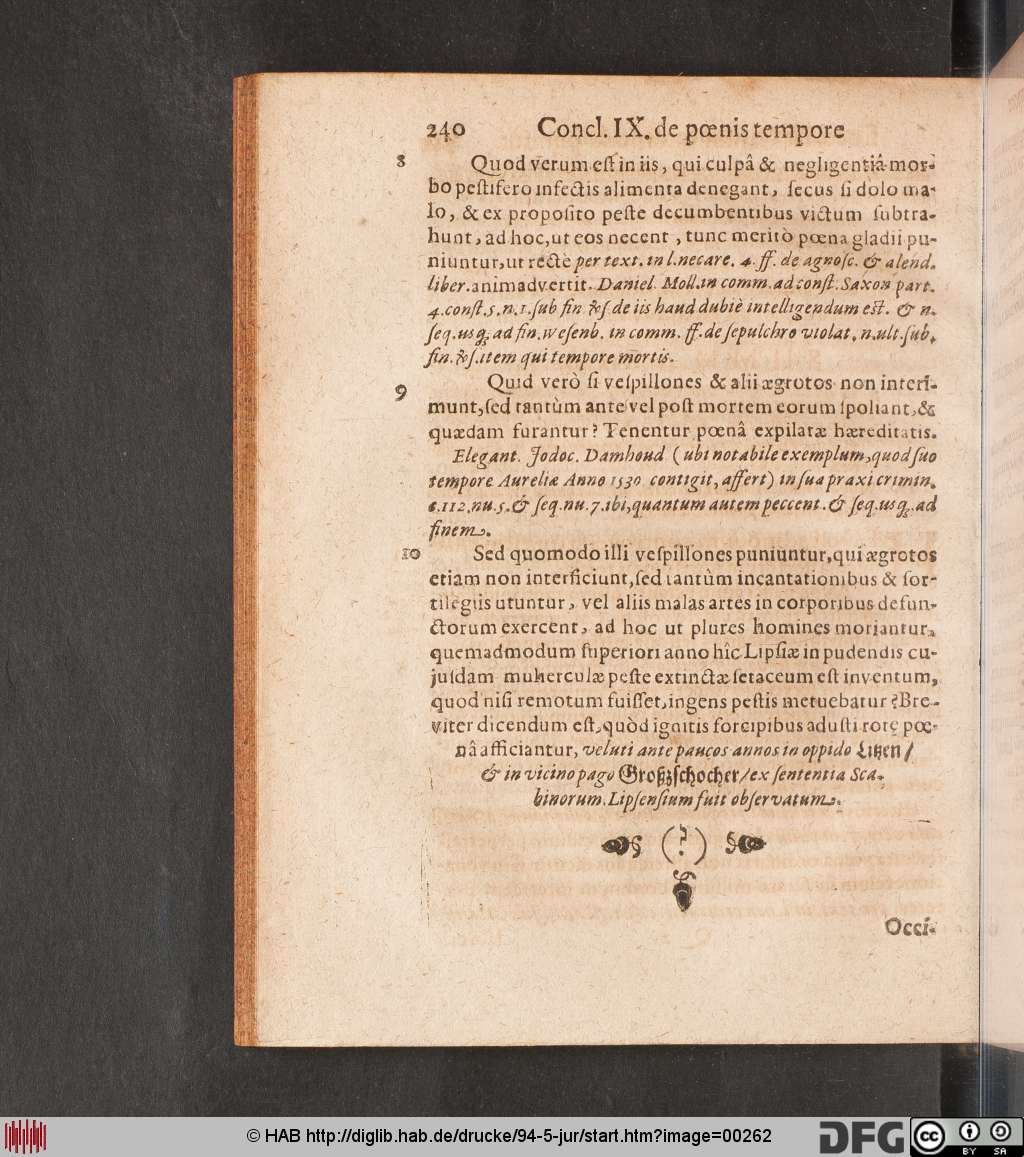 240 Concl. IX. de pœnis tempore
8 Quod verum est in iis, qui culpâ & negligentiâ mor-
bo pestifero infectis alimenta denegant, secus si dolo ma-
lo, & ex proposito peste decumbentibus victum subtra-
hunt, ad hoc, ut eos necent, tunc meritò pœna gladii pu-
niuntur, ut rectè per text. in l. necare. 4. ff. de agnosc. & alend.
liber. animadvertit. Daniel. Moll. in comm. ad const. Saxon part.
4. const. 5. n. 1. sub fin ℣. de iis haud dubiè intelligendum est. & n.
seq. usq; ad fin. Wesenb. in comm. ff. de sepulchro violat. n. ult. sub.
fin. ℣. item qui tempore mortis.
9 Quid verò si vespillones & alii ægrotos non interi-
munt, sed tantùm ante vel post mortem eorum spoliant, &
quædam furantur? Tenentur pœnâ expilatæ hæreditatis.
Elegant. Jodoc. Damhoud (ubi notabile exemplum, quod suo
tempore Aureliæ Anno 1530. contigit, affert) in sua praxi crimin.
c. 112. nu. 5. & seq. nu. 7. ibi, quantum autem peccent. & seq. usq; ad
finem.
10 Sed quomodo illi vespillones puniuntur, qui ægrotos
etiam non interficiunt, sed tantùm incantationibus & sor-
tilegiis utuntur, vel aliis malas artes in corporibus defun-
ctorum exercent, ad hoc ut plures homines moriantur,
quemadmodum superiori anno hîc Lipsiæ in pudendis cu-
jusdam mulierculæ peste extinctæ setaceum est inventum,
quod nisi remotum fuisset, ingens pestis metuebatur? Bre-
viter dicendum est, quòd ignitis forcipibus adusti rotę pœ-
nâ afficiantur, veluti ante paucos annos in oppido Lützen /
& in vicino pago Großzschocher / ex sententia Sca-
binorum Lipsensium fuit observatum.
(?)
Occi-
© HAB http://diglib.hab.de/drucke/94-5-jur/start.htm?image=00262
DFG
cc BY SA